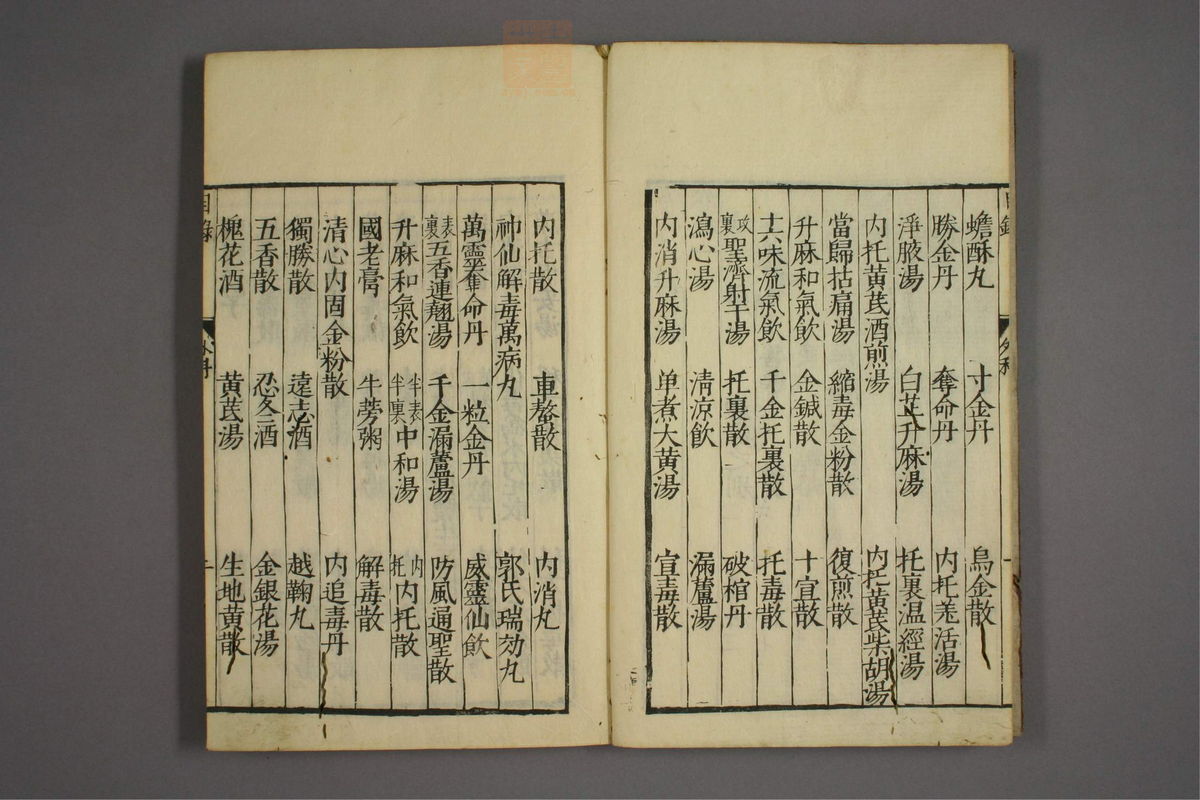 蟾酥丸 寸金丹 烏金散
勝金丹 奪命丹 內托羌活湯
淨腋湯 白芷升麻湯 托裏温經湯
內托黃芪酒煎湯 內托黃芪柴胡湯
當歸拈痛湯 縮毒金粉散 復煎散
升麻和氣飲 金鍼散 十宣散
十六味流氣飲 千金托裏散 托毒散
攻裏聖濟射干湯 托裏散 破棺丹
瀉心湯 清凉飲 漏蘆湯
內消升麻湯 单煮大黃湯 宣毒散
目錄
內托散 車螯散 內消丸
神仙解毒萬病丸 郭氏瑞効丸
萬靈奪命丹 一粒金丹 威靈仙飲
表裏五香連翹湯 千金漏蘆湯 防風通聖散
升麻和氣飲 半表半裏中和湯 內托內托散
國老膏 牛蒡粥 解毒散
清心內固金粉散 內追毒丹
獨勝散 遠志酒 越鞠丸
五香散 忍冬酒 金銀花湯
槐花酒 黃芪湯 生地黃散
目錄